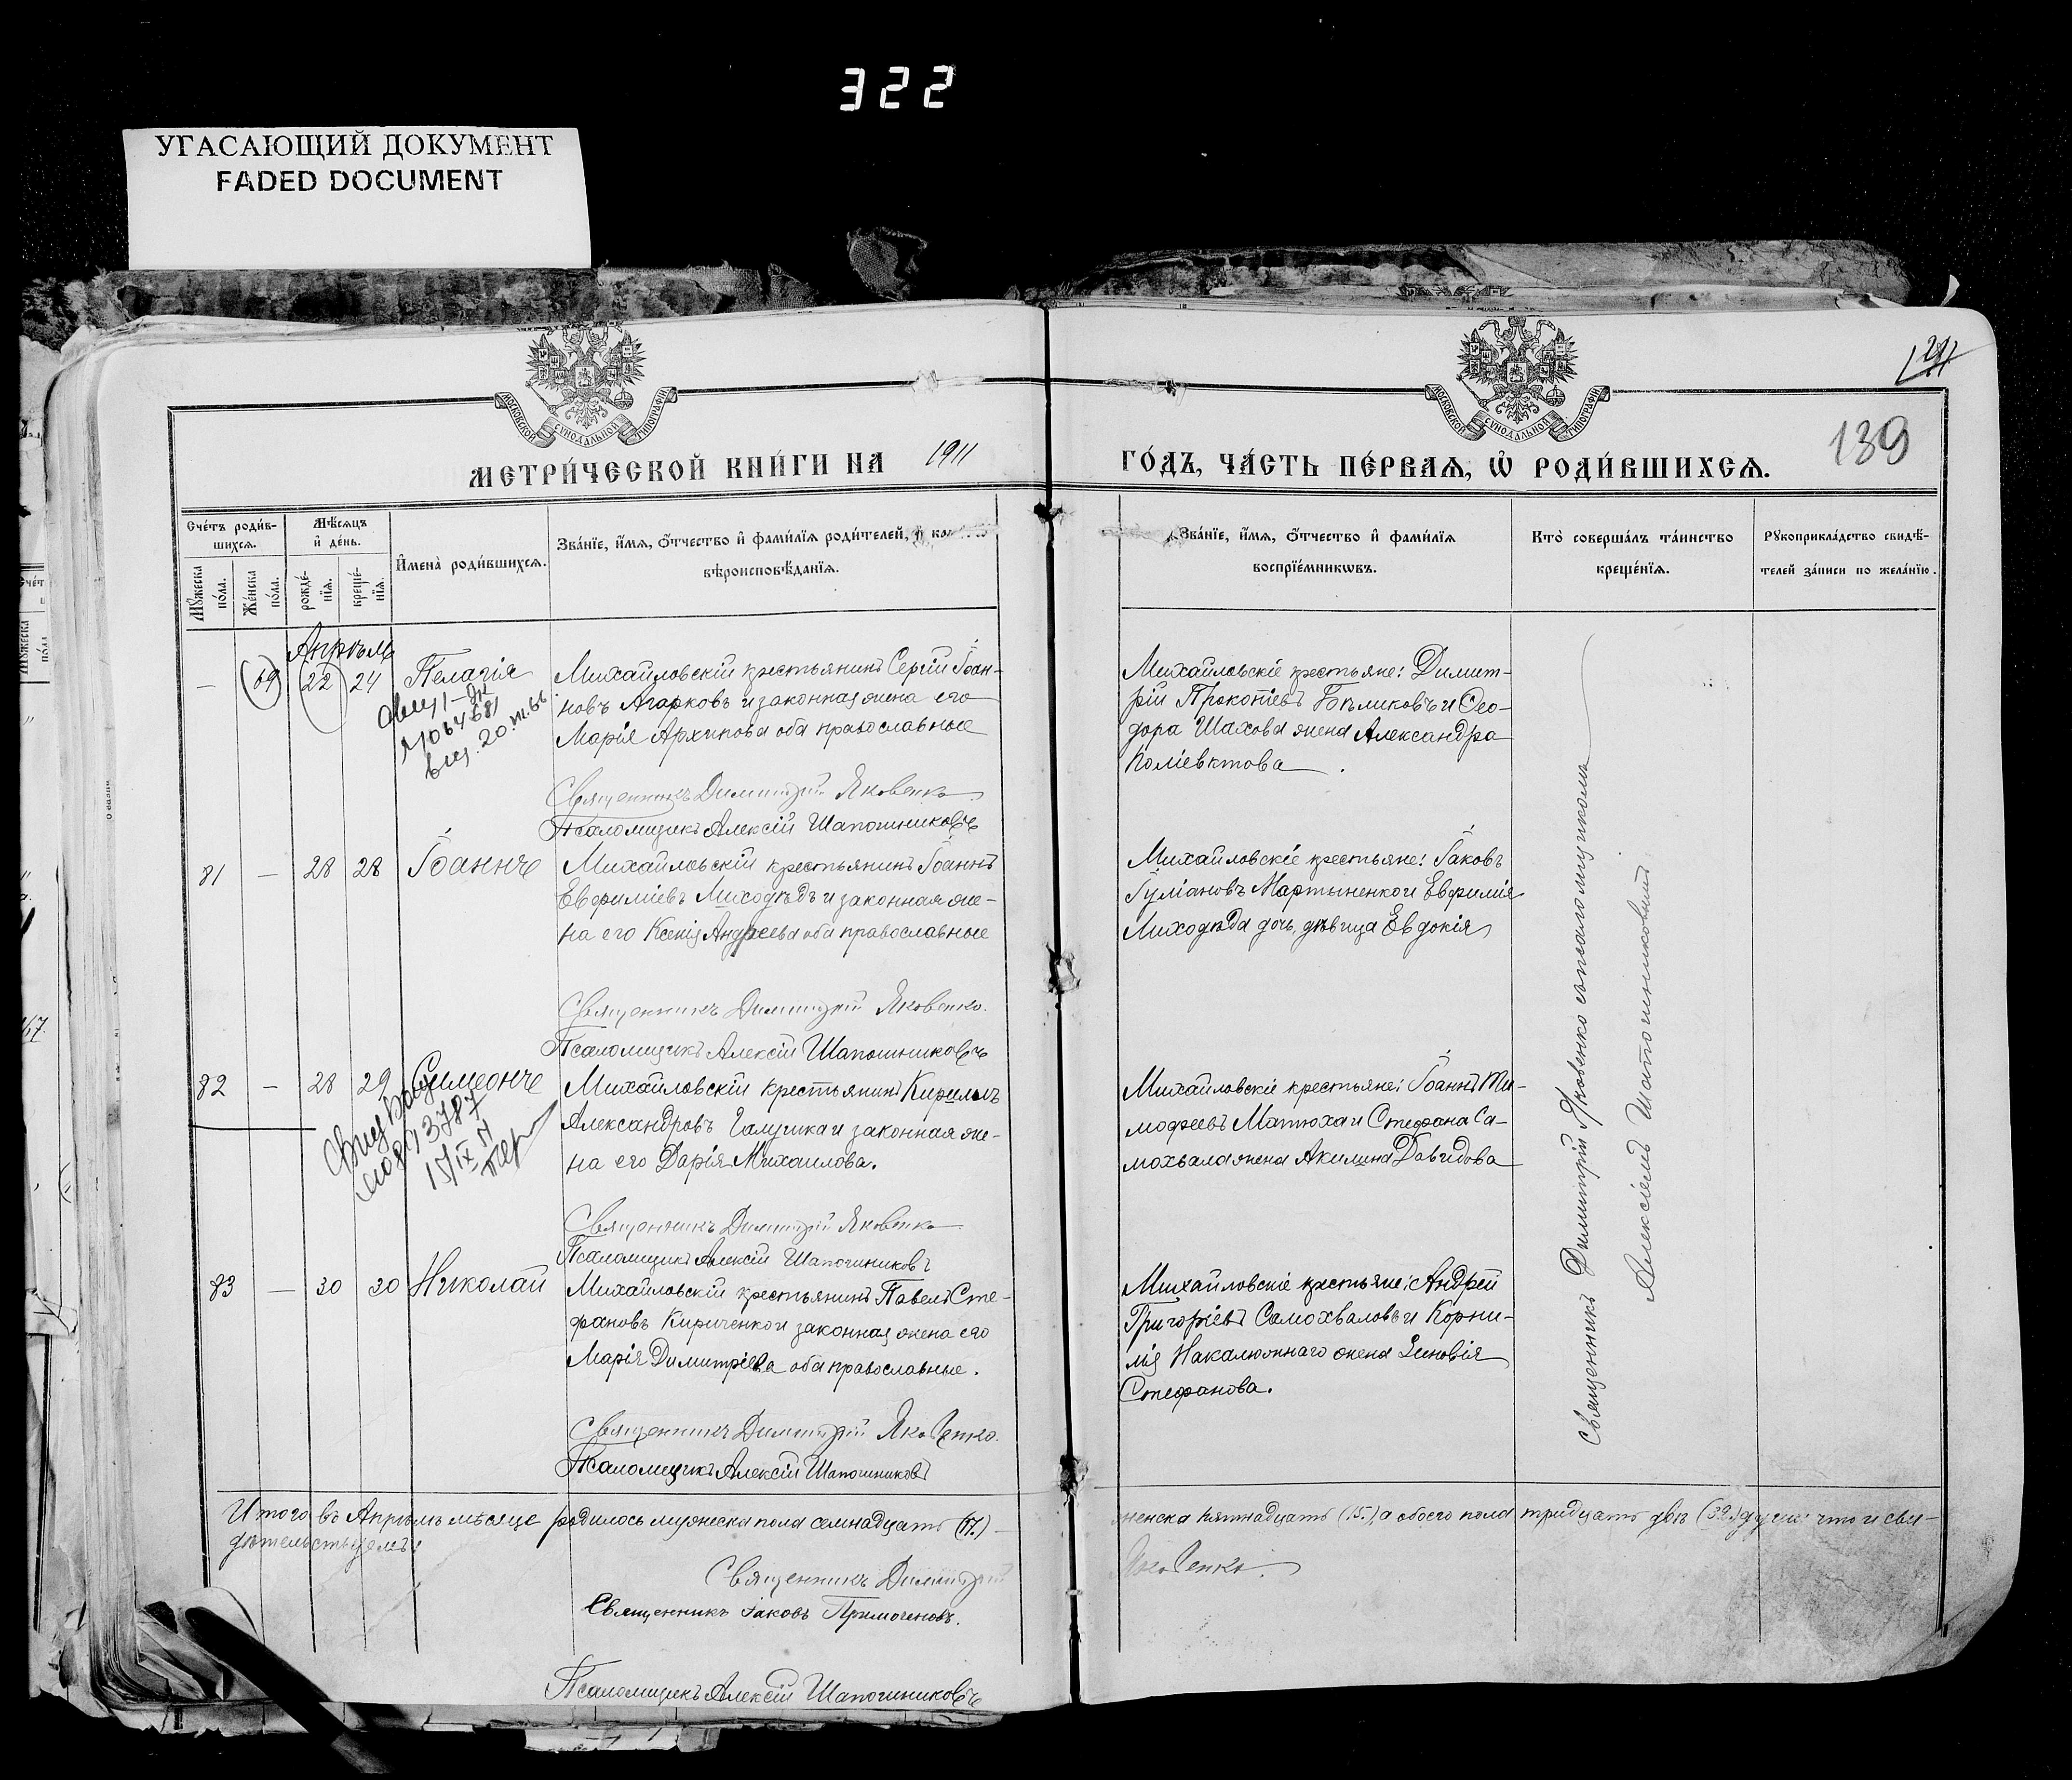 322
УГАСАЮЩИЙ ДОКУМЕНТ
FADED DOCUMENT
МОСКОВСКОЙ СѴНОДАЛЬНОЙ ТИПОГРАФІИ
МОСКОВСКОЙ СѴНОДАЛЬНОЙ ТИПОГРАФІИ
139
МЕТРИ́ЧЕСКОЙ КНИ́ГИ НА 1911 ГО́ДЪ, ЧА́СТЬ ПЕ́РВАѦ, Ѡ҆ РОДИ́ВШИХСѦ.
Сче́тъ роди́в-
шихсѧ.
Мꙋ́жеска по́ла.
Же́нска по́ла.
Мѣ́сѧцъ
и҆ де́нь.
рожде́-
нїѧ.
креще́-
нїѧ.
И҆мена̀ роди́вшихсѧ.
Зва́нїе, и҆́мѧ, ѻ҆́тчество и҆ фами́лїѧ роди́телей, и҆
вѣроисповѣ́данїѧ.
Зва́нїе, и҆́мѧ, ѻ҆́тчество и҆ фами́лїѧ
воспрїе́мникѡвъ.
Кто̀ соверша́лъ та́инство
креще́нїѧ.
Рꙋкоприкла́дство свидѣ́-
телей за́писи по жела́нїю.
Апрѣль
— 69 22 24 Пелагія
Михайловскій крестьянинъ Сергій Іоан-
новъ Агарковъ и законная жена его
Марія Архипова оба православные
Священникъ Димитрій Яковенко
Псаломщикъ Алексій Шапошниковъ
Михайловскіе крестьяне: Димит-
рій Прокопіевъ Бѣликовъ и Ѳео-
дора Шахова жена Александра
Поліевктова
81 — 28 28 Іоаннъ
Михайловскій крестьянинъ Іоаннъ
Евфиміевъ Лиходѣдъ и законная же-
на его Ксенія Андреева оба православные
Священникъ Димитрій Яковенко.
Псаломщикъ Алексій Шапошниковъ
Михайловскіе крестьяне: Іаковъ
Іуліановъ Мартыненко и Евфимія
Лиходѣда дочь дѣвица Евдокія
82 — 28 29 Симеонъ
Михайловскій крестьянинъ Кириллъ
Александровъ Галушка и законная же-
на его Дарія Михаилова.
Священникъ Димитрій Яковенко
Псаломщикъ Алексій Шапошниковъ
Михайловскіе крестьяне: Іоаннъ Ти-
мофеевъ Матюха и Стефана Са-
мохвала жена Акилина Давидова
83 — 30 30 Николай
Михайловскій крестьянинъ Павелъ Сте-
фановъ Кириченко и законная жена его
Марія Димитріева оба православные.
Священникъ Димитрій Яковенко.
Псаломщикъ Алексій Шапошниковъ
Михайловскіе крестьяне: Андрей
Григоріевъ Самохваловъ и Корни-
лія жена Зиновія
Стефанова.
Священникъ Димитрій Яковенко съ псаломщикомъ
Алексіемъ Шапошниковымъ
Итого въ Апрѣлѣ мѣсяце родилось мужеска пола семнадцать (17.) женска пятнадцать (15.) а обоего пола тридцать двѣ (32.) души: что и сви-
дѣтельствуемъ:
Священникъ Димитрій Яковенко.
Священникъ Іаковъ
Псаломщикъ Алексій Шапошниковъ